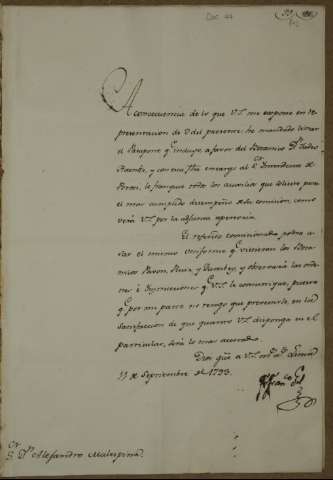 Doc. 44
A consecuencia de lo que V.S. me expone en re
presentacion de 9 del presente, he mandado librar
el Pasaporte q.e incluyo a favor del Botanico D.n Tadeo
Haenke, y con esta fha encargo al S.or Intendente de
le franquee todos los auxilios que pidiere para
el mas cumplido desempeño de su comision, como
verá V.S. por la adjunta apertoria.
El referido comisionado podra u
sar el mismo uniforme q.e vistieron los Bota
nicos Pavon, Ruiz, y Dombey, y observará las orde
nes é Instrucciones q.e V.S. le comunique, puesto
q.e por mi parte no tengo que prevenirle, en la
satisfaccion de que quanto V.S. disponga en el
particular, será lo mas acertado.
Dios gũe a V.S. m.s a.s Lima
11 de Septiembre de 1793.
S.or D.n Alejandro Malespina.